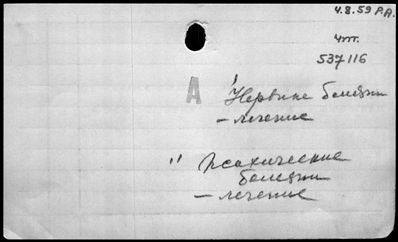 4.8.59 Р.А.
чт.
537116
А
Нервные болезни
– лечение
" Психические
болезни
– лечение